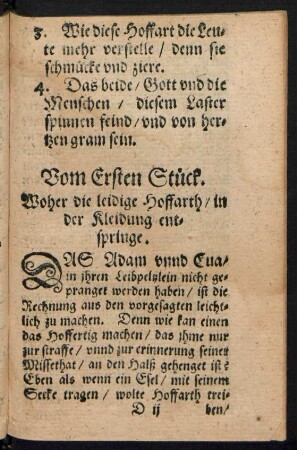 3. Wie diese Hoffart die Leu-
te mehr verstelle / denn sie
schmücke vnd ziere.
4. Das beide / Gott vnd die
Menschen / diesem Laster
spinnen feind / vnd von her-
tzen gram sein.
Vom Ersten Stück.
Woher die leidige Hoffarth / in
der Kleidung ent-
springe.
DAS Adam vnnd Eua
in jhren Leibpeltzlein nicht ge-
pranget werden haben / ist die
Rechnung aus den vorgesagten leicht-
lich zu machen. Denn wie kan einen
das Hoffertig machen / das jhme nur
zur straffe / vnnd zur erinnerung seiner
Missethat / an den Halß gehenget ist?
Eben als wenn ein Esel / mit seinem
Secke tragen / wolte Hoffarth trei-
D ij ben /